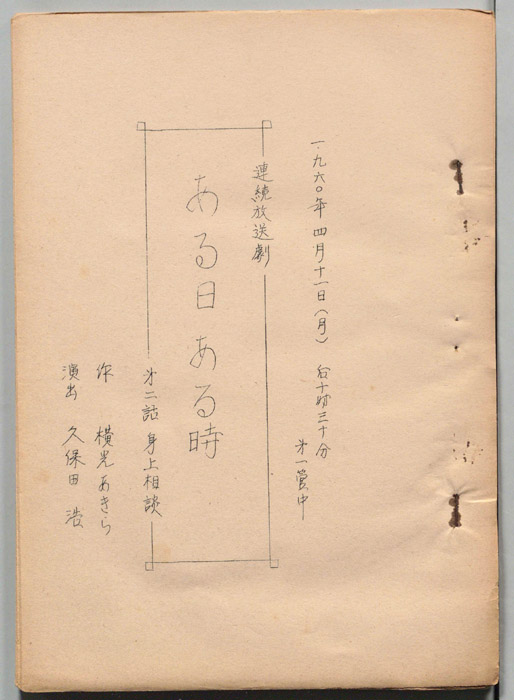 一九六〇年四月十一日(月) 后十時三十分
才一管中
連続放送劇
ある日ある時
才二話 身上相談
作 横光あきら
演出 久保田 浩